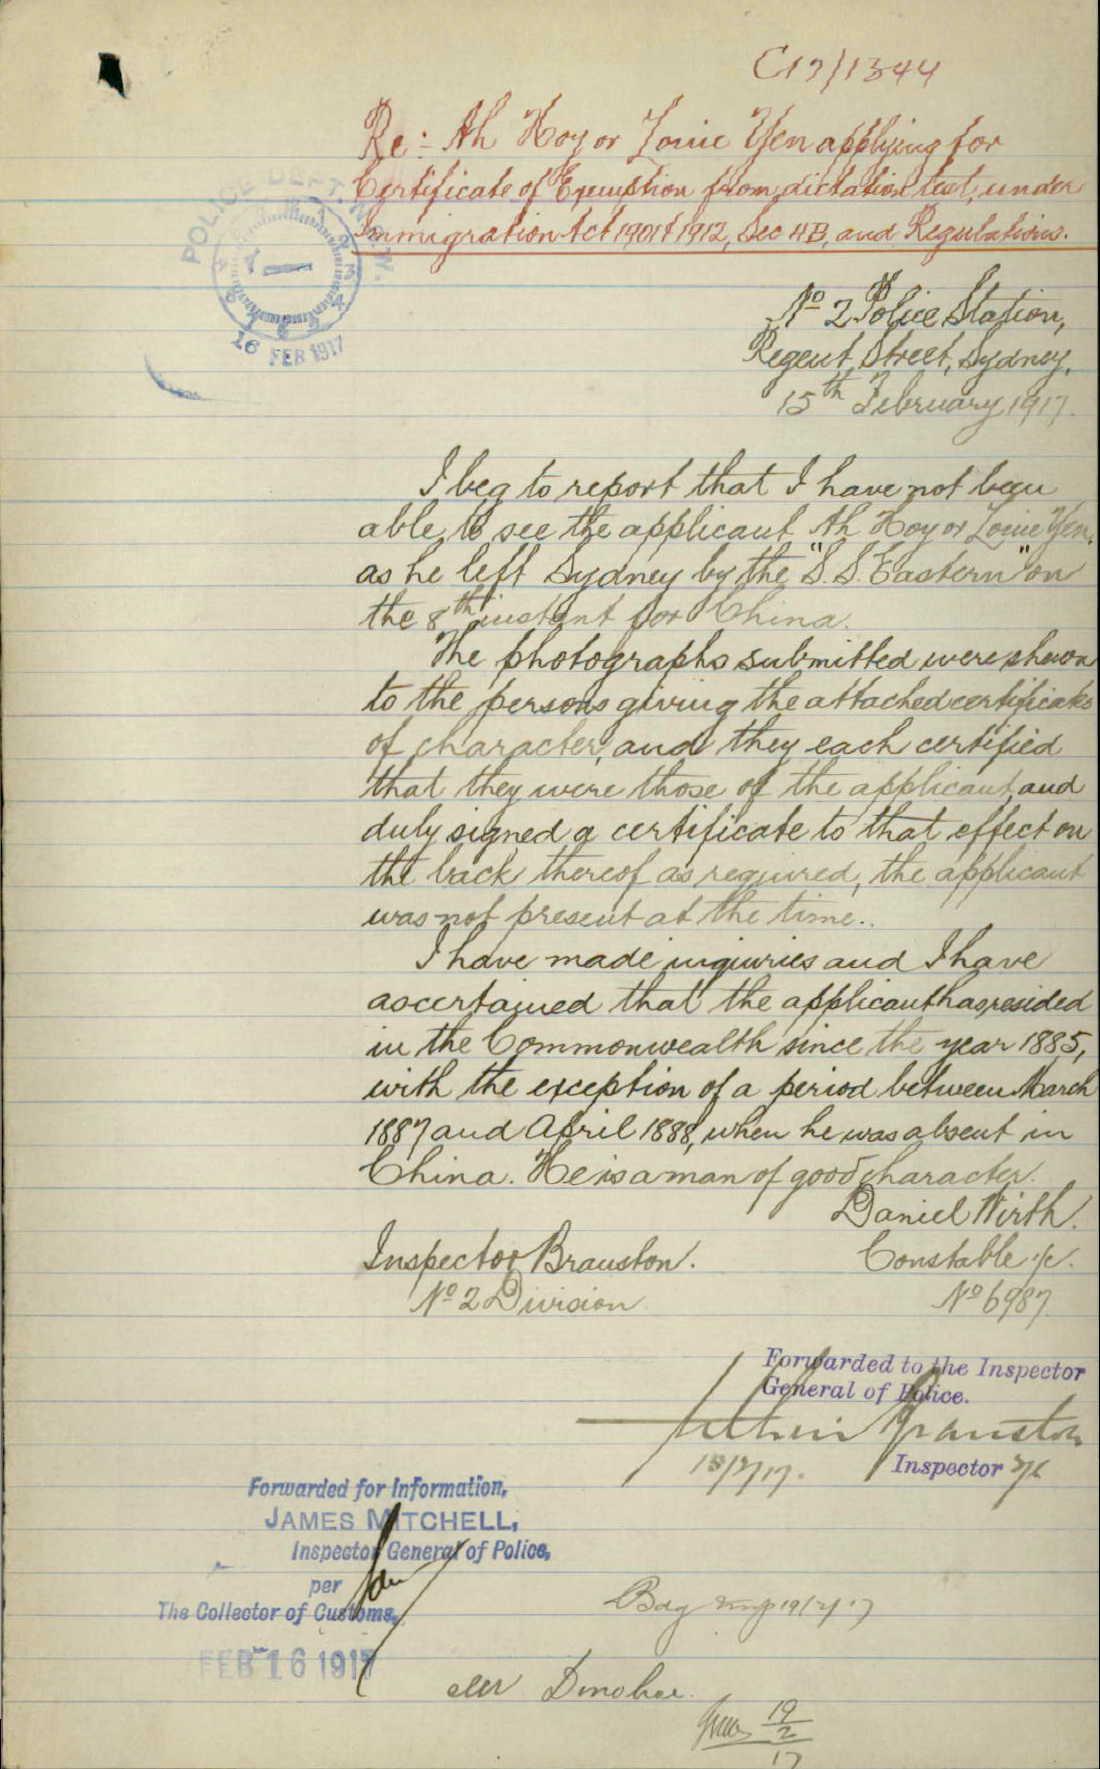 C17/1344
Re:- Ah Hoy or Louie Yen applying for
Certificate of Exemption from dictation test, under
Immigration Act 1901 & 1912, Sec 4B, and Regulations.
POLICE DEPT. N.S.W.
16 FEB 1917
No 2 Police Station,
Regent Street, Sydney,
15th February 1917.
I beg to report that I have not been
able to see the applicant Ah Hoy or Louie Yen,
as he left Sydney by the "S.S. Eastern" on
the 8th instant for China.
The photographs submitted were shown
to the persons giving the attached certificates
of character, and they each certified
that they were those of the applicant, and
duly signed a certificate to that effect on
the back thereof as required, the applicant
was not present at the time.
I have made inquiries and I have
ascertained that the applicant has resided
in the Commonwealth since the year 1885,
with the exception of a period between March
1887 and April 1888, when he was absent in
China. He is a man of good character.
Daniel Wirth.
Inspector Branston. Constable 1/c.
No 2 Division No 6987
Forwarded to the Inspector
General of Police.
Branston
15/2/17. Inspector
Forwarded for Information,
JAMES MITCHELL,
Inspector General of Police,
per
The Collector of Customs,
FEB 16 1917
19/2/17
Mr Donohoe.
19/2/17